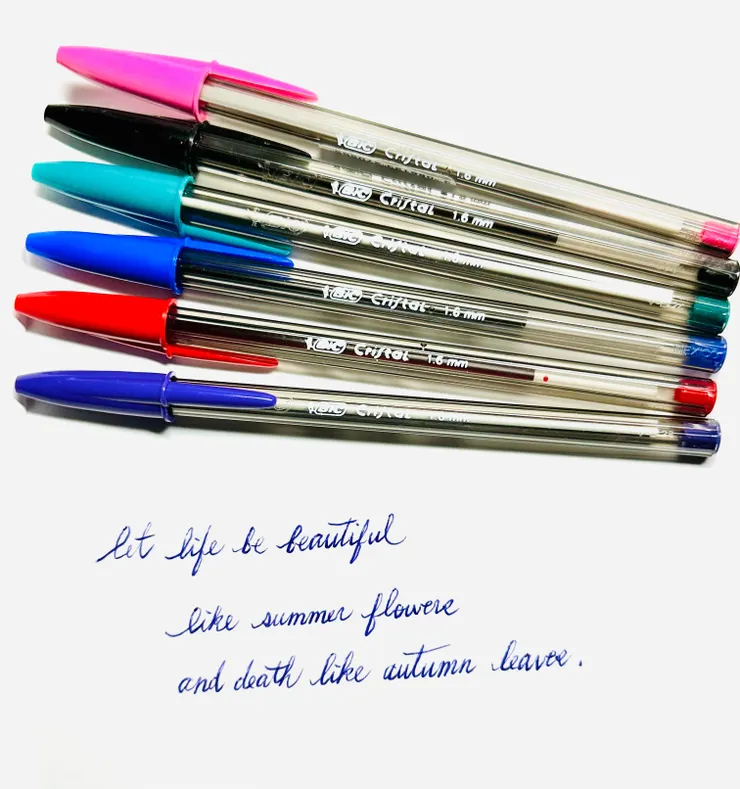 BIC Cristal 1.6 mm
BIC Cristal 1.6 mm
BIC Cristal 1.6 mm
BIC Cristal 1.6 mm
BIC Cristal 1.6 mm
BIC Cristal 1.6 mm
let life be beautiful
like summer flowers
and death like autumn leaves.